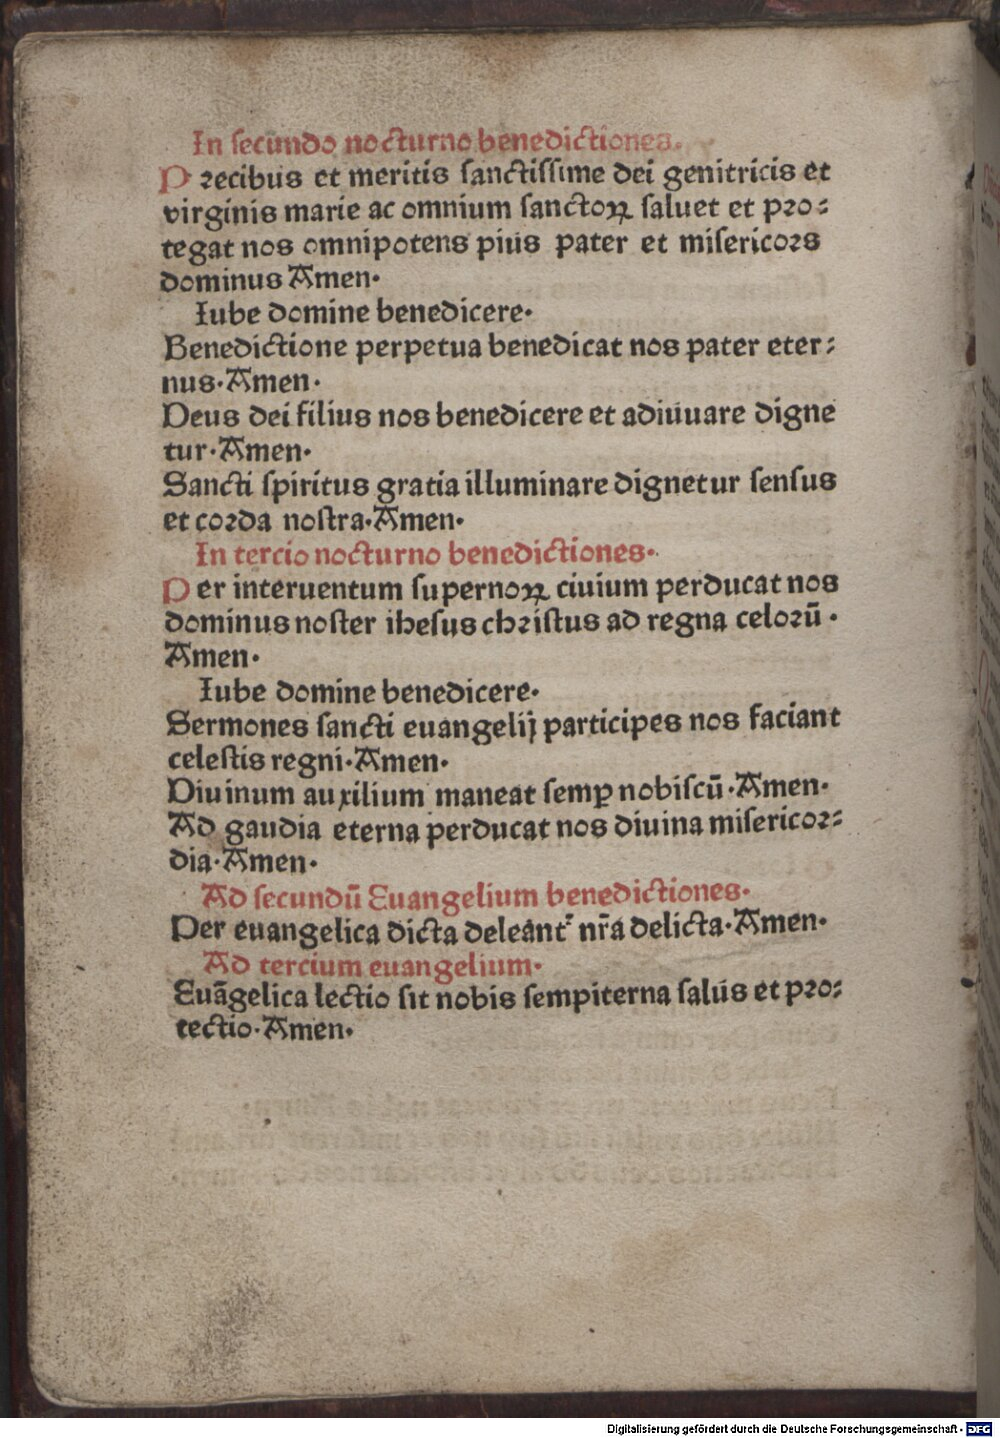 In secundo nocturno benedictiones.
Precibus et meritis sanctissime dei genitricis et
virginis marie ac omnium sanctoꝝ saluet et pro⸗
tegat nos omnipotens pius pater et misericors
dominus Amen·
Iube domine benedicere·
Benedictione perpetua benedicat nos pater eter⸗
nus·Amen·
Deus dei filius nos benedicere et adiuuare digne
tur·Amen·
Sancti spiritus gratia illuminare dignetur sensus
et corda nostra·Amen·
In tercio nocturno benedictiones·
Per interuentum supernoꝝ ciuium perducat nos
dominus noster ihesus christus ad regna celorū·
Amen·
Iube domine benedicere·
Sermones sancti euangelij participes nos faciant
celestis regni·Amen·
Diuinum auxilium maneat semꝑ nobiscū·Amen·
Ad gaudia eterna perducat nos diuina misericor⸗
dia·Amen·
Ad secundū Euangelium benedictiones·
Per euangelica dicta deleant᷑ nr̄a delicta·Amen·
Ad tercium euangelium·
Euāgelica lectio sit nobis sempiterna salus et pro⸗
tectio·Amen·
Digitalisierung gefördert durch die Deutsche Forschungsgemeinschaft - DFG